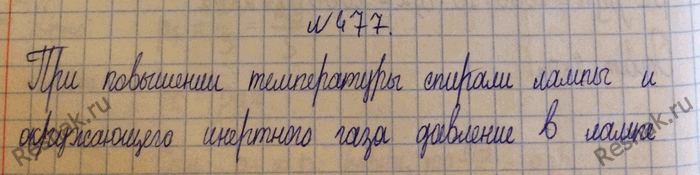 №477.
При повышении температуры спирали лампы и
окружающего инертного газа давление в лампе
Reshak.ru
Reshak.ru